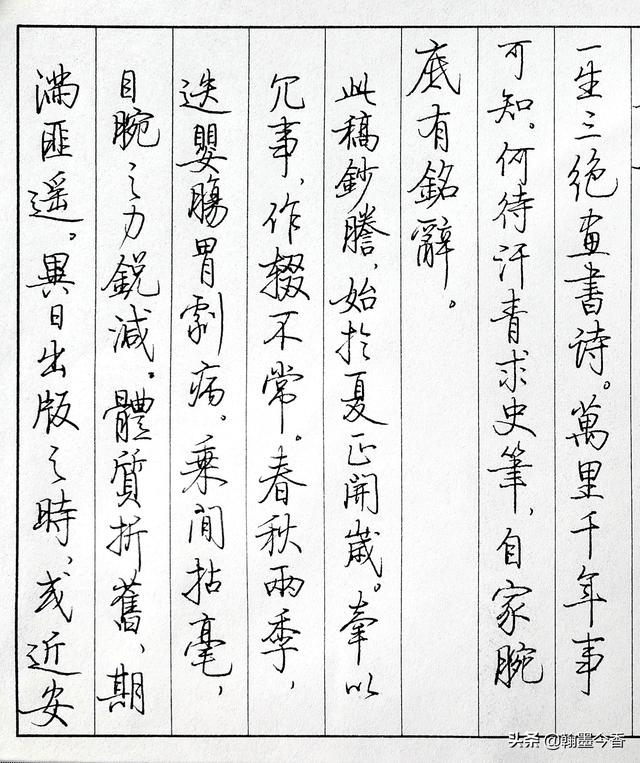 一生三绝畫書詩。萬里千年事
可知。何待汗青求史筆，自家腕
底有銘辭。
此稿鈔謄，始於夏正開歲。牽以
冗事，作輟不常。春秋兩季，
迭嬰腸胃劇病。乘間拈毫，
目腕之力銳減。體質折舊，期
滿匪遥。異日出版之時，或近安
头条 @翰墨今香